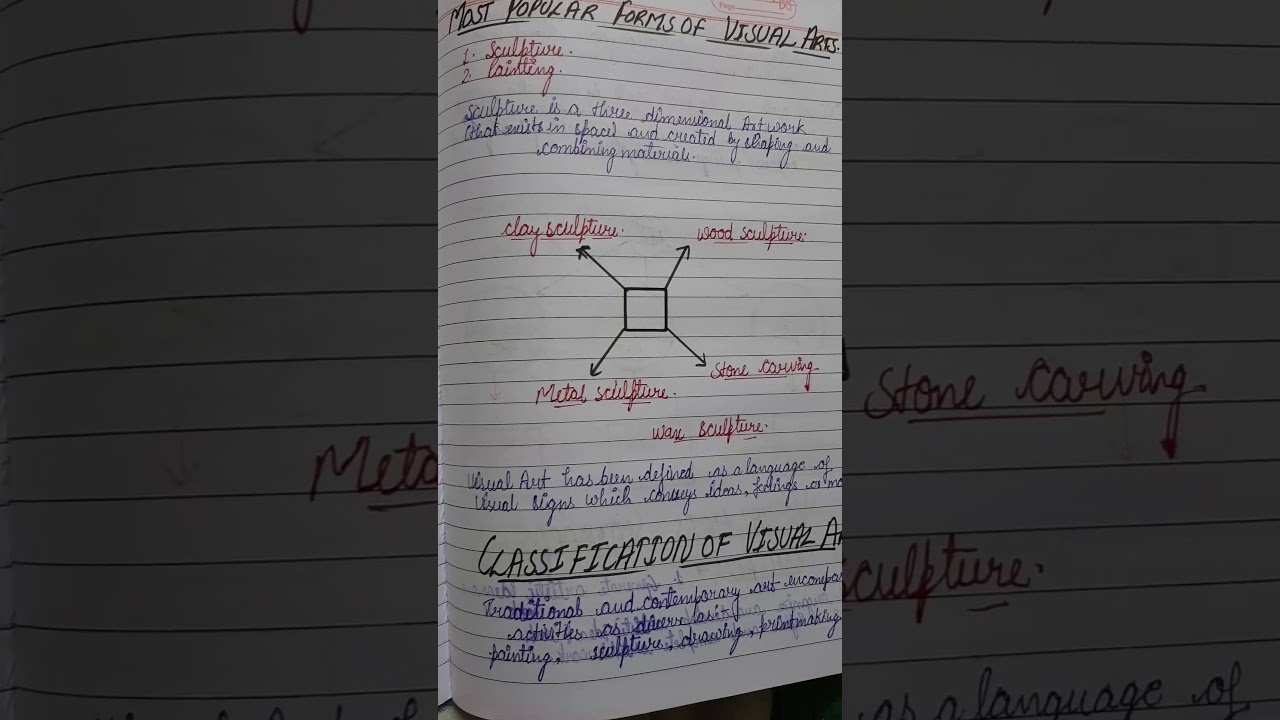 MOST POPULAR FORMS OF VISUAL ARTS.
1. Sculpture.
2. Painting.
Sculpture is a three dimensional Art work
(that exists in space) and created by shaping and
combining materials.
clay sculpture. wood sculpture.
Metal sculpture. Stone carving
wax sculpture.
Visual Art has been defined as a language of
visual signs which conveys ideas, feelings or
CLASSIFICATION OF VISUAL
Traditional and contemporary art
activities as diverse as
painting, sculpture, drawing, printmaking